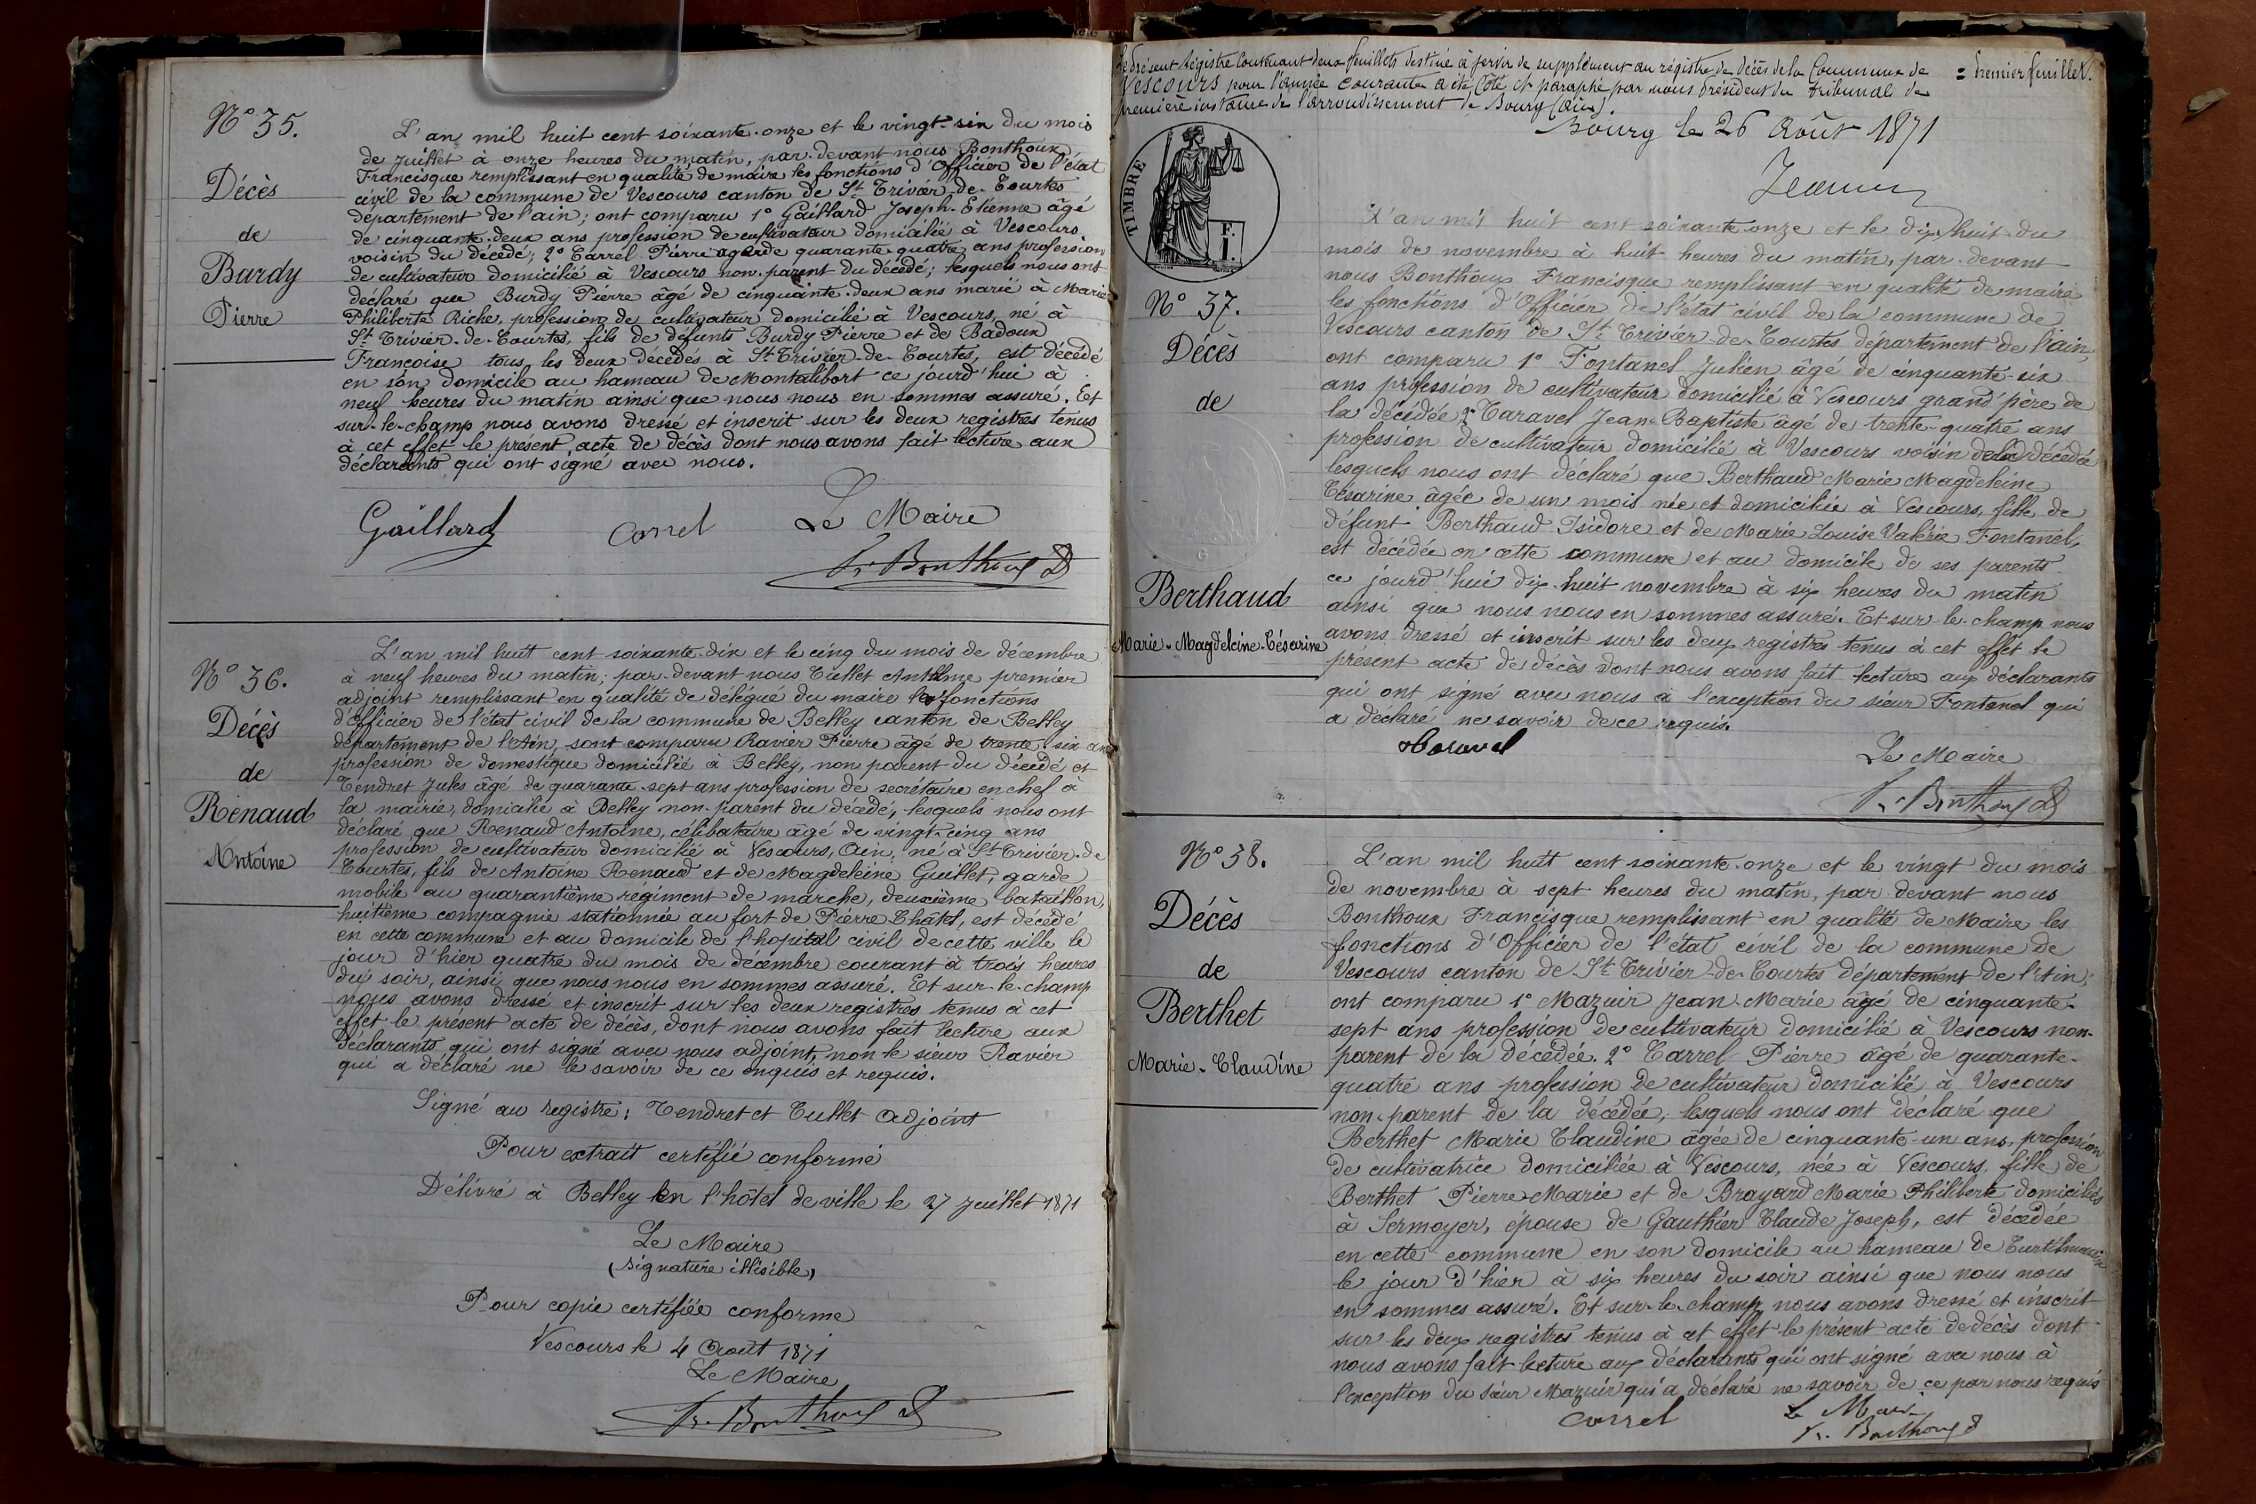 N° 35.
Décès
de
Burdy
Pierre
L'an mil huit cent soixante-onze et le vingt-six du mois
de Juillet à onze heures du matin, par-devant nous Bonthoux
Francisque remplissant en qualité de maire les fonctions d'Officier de l'état
civil de la commune de Vescours canton de St Trivier-de-Courtes
département de l'ain; ont comparu 1° Gaillard Joseph-Etienne âgé
de cinquante-deux ans profession de cultivateur domicilié à Vescours
voisin du décédé; 2° Carrel Pierre agé de quarante-quatre ans profession
de cultivateur domicilié à Vescours non-parent du décédé; lesquels nous ont
déclaré que Burdy Pierre âgé de cinquante-deux ans marié à Marie
Philiberte Riche, profession de cultivateur domicilié à Vescours, né à
St Trivier-de-Courtes, fils de défunts Burdy Pierre et de Badoux
Françoise tous les deux décédés à St Trivier-de-Courtes, est décédé
en son domicile au hameau de Montalibort ce jourd'hui à
neuf heures du matin ainsi que nous nous en sommes assuré. Et
sur-le-champ nous avons dressé et inscrit sur les deux registres tenus
à cet effet le présent acte de décès dont nous avons fait lecture aux
déclarants qui ont signé avec nous.
Gaillard Carrel Le Maire
Fr. Bonthoux
N° 36.
Décès
de
Renaud
Antoine
L'an mil huit cent soixante-dix et le cinq du mois de décembre
à neuf heures du matin; par-devant nous Tullet Anthelme premier
adjoint remplissant en qualité de délégué du maire les fonctions
d'officier de l'état civil de la commune de Belley canton de Belley
département de l'Ain, sont comparu Ravier Pierre âgé de trente-six ans
profession de domestique domicilié à Belley, non parent du décédé et
Tendret Jules âgé de quarante-sept ans profession de secrétaire en chef à
la mairie, domicilié à Belley non-parent du décédé, lesquels nous ont
déclaré que Renaud Antoine, célibataire âgé de vingt-cinq ans
profession de cultivateur domicilié à Vescours, Ain, né à St Trivier-de
Courtes, fils de Antoine Renaud et de Magdeleine Guillet, garde
mobile au quarantième régiment de marche, deuxième bataillon,
huitième compagnie stationnée au fort de Pierre Châtel, est décédé
en cette commune et au domicile de l'hopital civil de cette ville le
jour d'hier quatre du mois de décembre courant à trois heures
du soir, ainsi que nous nous en sommes assuré. Et sur-le-champ
nous avons dressé et inscrit sur les deux registres tenus à cet
effet le présent acte de décès, dont nous avons fait lecture aux
déclarants qui ont signé avec nous adjoint, non le sieur Ravier
qui a déclaré ne le savoir de ce enquis et requis.
Signé au registre: Tendret et Tullet adjoint
Pour extrait certifié conforme
Délivré à Belley en l'hôtel de ville le 27 Juillet 1871
Le Maire
(signature illisible)
Pour copie certifiée conforme
Vescours le 4 Août 1871
Le Maire
Fr. Bonthoux
Le présent Régistre contenant deux feuillets destiné à servir de supplément au régistre de décès de la Commune de = Premier feuillet.
Vescours pour l'année courante a été coté et paraphé par nous Président du Tribunal de
première instance de l'arrondissement de Bourg (Ain).
Bourg le 26 Août 1871
TIMBRE
F.
1.
N° 37.
Décès
de
Berthaud
Marie-Magdeleine-Césarine
L'an mil huit cent soixante onze et le dix-huit du
mois de novembre à huit heures du matin, par-devant
nous Bonthoux Francisque remplissant en qualité de maire
les fonctions d'Officier de l'état civil de la commune de
Vescours canton de St Trivier-de-Courtes département de l'ain,
ont comparu 1° Fontanel Julien âgé de cinquante-six
ans profession de cultivateur domicilié à Vescours grand'père de
la décédée 2° Taravel Jean-Baptiste âgé de trente-quatre ans
profession de cultivateur domicilié à Vescours voisin de la décédée
lesquels nous ont déclaré que Berthaud Marie Magdeleine
Césarine âgée de un mois née et domiciliée à Vescours, fille de
défunt Berthaud Isidore et de Marie Louise Valérie Fontanel,
est décédée en cette commune et au domicile de ses parents
ce jourd'hui dix-huit novembre à six heures du matin
ainsi que nous nous en sommes assuré. Et sur-le-champ nous
avons dressé et inscrit sur les deux registres tenus à cet effet le
présent acte de décès dont nous avons fait lecture aux déclarants
qui ont signé avec nous à l'exception du sieur Fontanel qui
a déclaré ne savoir de ce requis.
Taravel Le Maire
Fr. Bonthoux
N° 38.
Décès
de
Berthet
Marie-Claudine
L'an mil huit cent soixante-onze et le vingt du mois
de novembre à sept heures du matin, par devant nous
Bonthoux Francisque remplissant en qualité de Maire les
fonctions d'Officier de l'état civil de la commune de
Vescours canton de St Trivier-de-Courtes département de l'Ain;
ont comparu 1° Mazuir Jean-Marie âgé de cinquante-
sept ans profession de cultivateur domicilié à Vescours non-
parent de la décédée. 2° Carrel Pierre âgé de quarante-
quatre ans profession de cultivateur domicilié à Vescours
non-parent de la décédée, lesquels nous ont déclaré que
Berthet Marie Claudine âgée de cinquante-un ans, profession
de cultivatrice domiciliée à Vescours, née à Vescours, fille de
Berthet Pierre-Marie et de Brayard Marie Philiberte domiciliés
à Sermoyer, épouse de Gauthier Claude Joseph, est décédée
en cette commune en son domicile au hameau de
le jour d'hier à six heures du soir ainsi que nous nous
en sommes assuré. Et sur-le-champ nous avons dressé et inscrit
sur les deux registres tenus à cet effet le présent acte de décès dont
nous avons fait lecture aux déclarants qui ont signé avec nous à
l'exception du sieur Mazuir qui a déclaré ne savoir de ce par nous requis
Carrel Le Maire
Fr. Bonthoux